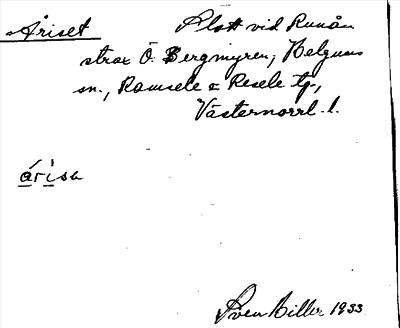 Åriset Slått vid Runån
strax Ö. Bergmyren, Helgums
sn., Ramsele o Resele tg.,
Västernorrl. l.
årisa
Sven Biller 1933